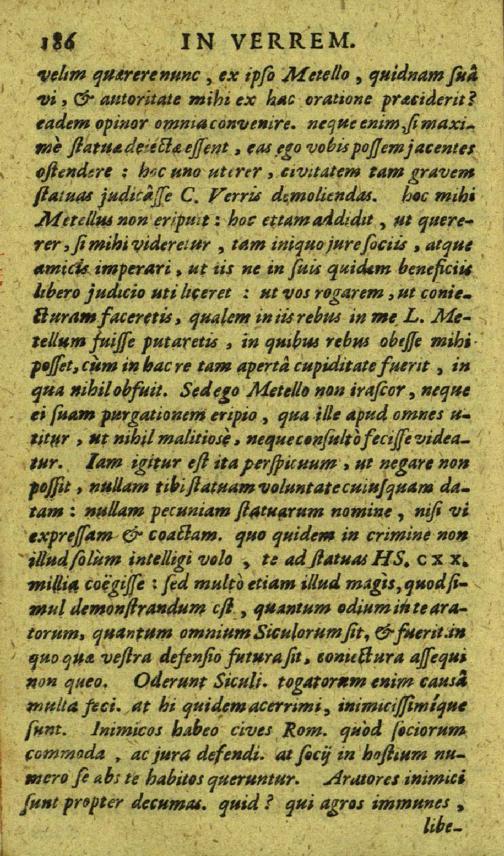 186 IN VERREM.
velim quærere nunc, ex ipso Metello, quidnam suâ
vi, & autoritate mihi ex hac oratione præciderit?
eadem opinor omnia convenire. neque enim, si maxi-
mè statuæ deiectæ essent, eas ego vobis possem jacentes
ostendere : hoc uno uterer, civitatem tam gravem
statuas judicâsse C. Verris demoliendas. hoc mihi
Metellus non eripuit : hoc ettam addidit, ut quere-
rer, si mihi videretur, tam iniquo jure sociis, atque
amicis imperari, ut iis ne in suis quidem beneficiis
libero judicio uti liceret : ut vos rogarem, ut conie-
cturam faceretis, qualem in iis rebus in me L. Me-
tellum fuisse putaretis, in quibus rebus obesse mihi
posset, cùm in hac re tam apertâ cupiditate fuerit, in
qua nihil obfuit. Sed ego Metello non irascor, neque
ei suam purgationem eripio, qua ille apud omnes u-
titur, ut nihil malitiosè, neque consultò fecisse videa-
tur. Iam igitur est ita perspicuum, ut negare non
possit, nullam tibi statuam voluntate cuiusquam da-
tam : nullam pecuniam statuarum nomine, nisi vi
expressam & coactam. quo quidem in crimine non
illud solùm intelligi volo, te ad statuas HS. CXX.
millia coëgisse : sed multò etiam illud magis, quod si-
mul demonstrandum est, quantum odium in te ara-
torum, quantum omnium Siculorum sit, & fuerit. in
quo quæ vestra defensio futura sit, coniectura assequi
non queo. Oderunt Siculi. togatorum enim causâ
multa feci. at hi quidem acerrimi, inimicissimíque
sunt. Inimicos habeo cives Rom. quòd sociorum
commoda, ac jura defendi. at socij in hostium nu-
mero se abs te habitos queruntur. Aratores inimici
sunt propter decumas. quid? qui agros immunes,
libe-